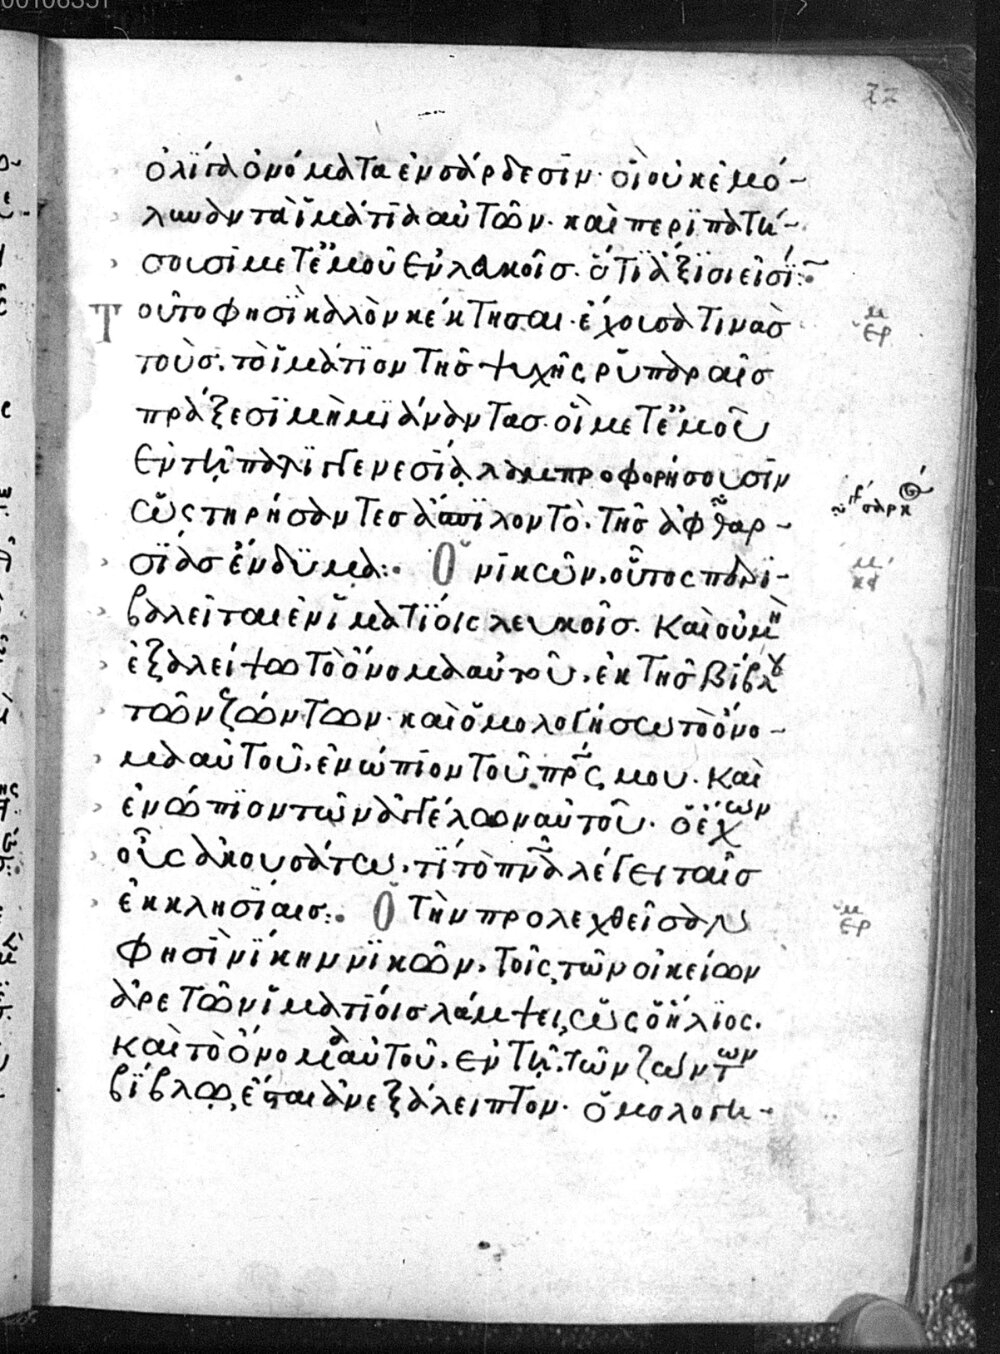 ὀλίγα ὀνόματα ἐν σάρδεσιν· οἳ οὐκ ἐμό-
λυναν τὰ ἱμάτια αὐτῶν· καὶ περιπατή-
σουσι μετ' ἐμοῦ ἐν λευκοῖς· ὅτι ἄξιοι εἰσί:~
Τοῦτο φησὶ καλὸν κέκτησαι· ἔχουσα τινὰς
τοὺς τὸ ἱμάτιον τῆς ψυχῆς ῥυπαραῖς
πράξεσι μὴ μιάναντας· οἳ μετ' ἐμοῦ
ἐν τῆ παλιγγενεσία λαμπροφορήσουσιν
ὡς τηρήσαντες ἄσπιλον τὸ τῆς ἀφθαρ-
σίας ἔνδυμα:· Ὁ νικῶν, οὗτος περι-
βαλεῖται ἐν ἱματίοις λευκοῖς. καὶ οὐ μὴ
ἐξαλείψω τὸ ὄνομα αὐτοῦ, ἐκ τῆς βίβλου
τῶν ζώντων· καὶ ὁμολογήσω τὸ ὄνο-
μα αὐτοῦ, ἐνώπιον τοῦ πρς μου. καὶ
ἐνώπιον τῶν ἀγγέλων αὐτοῦ· ὁ ἔχων
οὖς ἀκουσάτω, τί τὸ πνα λέγει ταῖς
ἐκκλησίαις:· Ὁ τὴν προλεχθεῖσαν
φησὶ νίκην νικῶν, τοῖς τῶν οἰκείων
ἀρετῶν ἱματίοις λάμψει, ὡς ὁ ἥλιος.
καὶ τὸ ὄνομα αὐτοῦ, ἐν τῆ τῶν ζώντων
βίβλω, ἔσται ἀνεξάλειπτον· ὁμολογη-